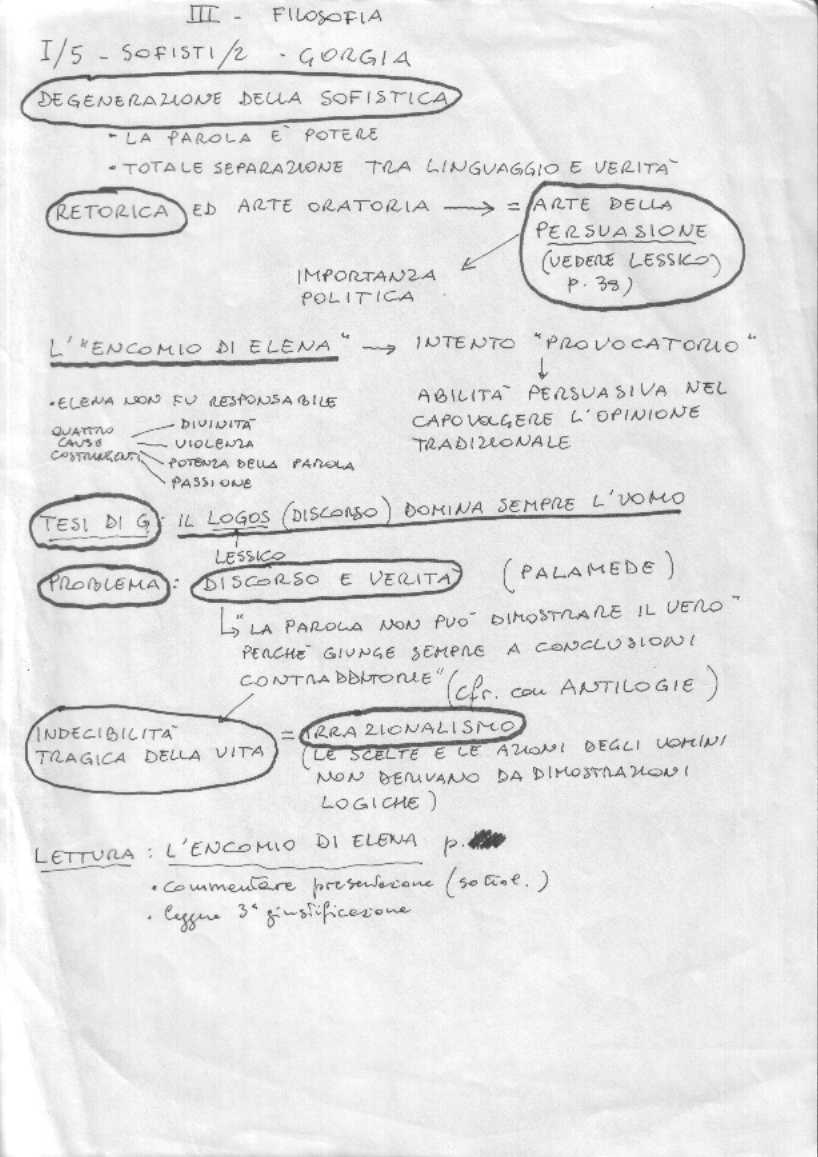 III - FILOSOFIA
I/5 - SOFISTI/2 - GORGIA
DEGENERAZIONE DELLA SOFISTICA
- LA PAROLA E' POTERE
- TOTALE SEPARAZIONE TRA LINGUAGGIO E VERITA'
RETORICA ED ARTE ORATORIA → = ARTE DELLA
PERSUASIONE
(VEDERE LESSICO)
p. 38)
IMPORTANZA
POLITICA
L'"ENCOMIO DI ELENA" → INTENTO "PROVOCATORIO"
ABILITA' PERSUASIVA NEL
CAPOVOLGERE L'OPINIONE
TRADIZIONALE
• ELENA NON FU RESPONSABILE
QUATTRO
CAUSE
COSTRINGENTI
DIVINITA'
VIOLENZA
POTENZA DELLA PAROLA
PASSIONE
TESI DI G: IL LOGOS (DISCORSO) DOMINA SEMPRE L'UOMO
LESSICO
PROBLEMA: DISCORSO E VERITA' (PALAMEDE)
"LA PAROLA NON PUO' DIMOSTRARE IL VERO"
PERCHE' GIUNGE SEMPRE A CONCLUSIONI
CONTRADDITORIE" (cfr. con ANTILOGIE)
INDECIBILITA'
TRAGICA DELLA VITA = IRRAZIONALISMO
(LE SCELTE E LE AZIONI DEGLI UOMINI
NON DERIVANO DA DIMOSTRAZIONI
LOGICHE)
LETTURA: L'ENCOMIO DI ELENA p.
• commentare presentazione (sottol.)
• leggere 3ª giustificazione